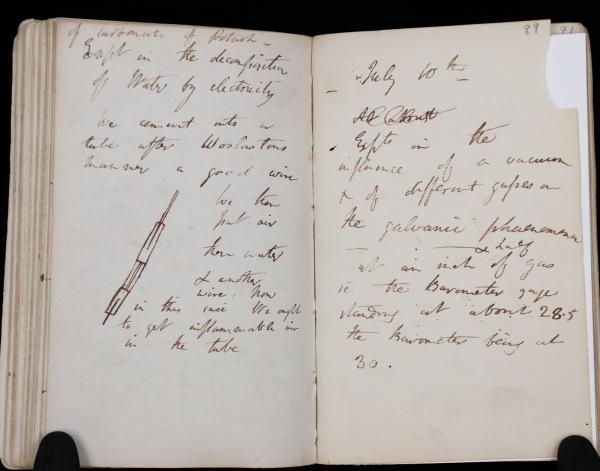 of carbonate of Potash -
Expt on the decomposition
of Water by electricity
We cement into a
tube after Woolastons
manner a good wire
We then
put air
then water
& another
wire; Now
in this case We ought
to get inflammable air
in the tube
89
91
- July 10th -
Expts on the
influence of a vacuum
& of different gasses on
the galvanic phaenomena
& half
at an inch of gas
ie the Barometer gage
standing at about 28.5
the Barometer being at
30.